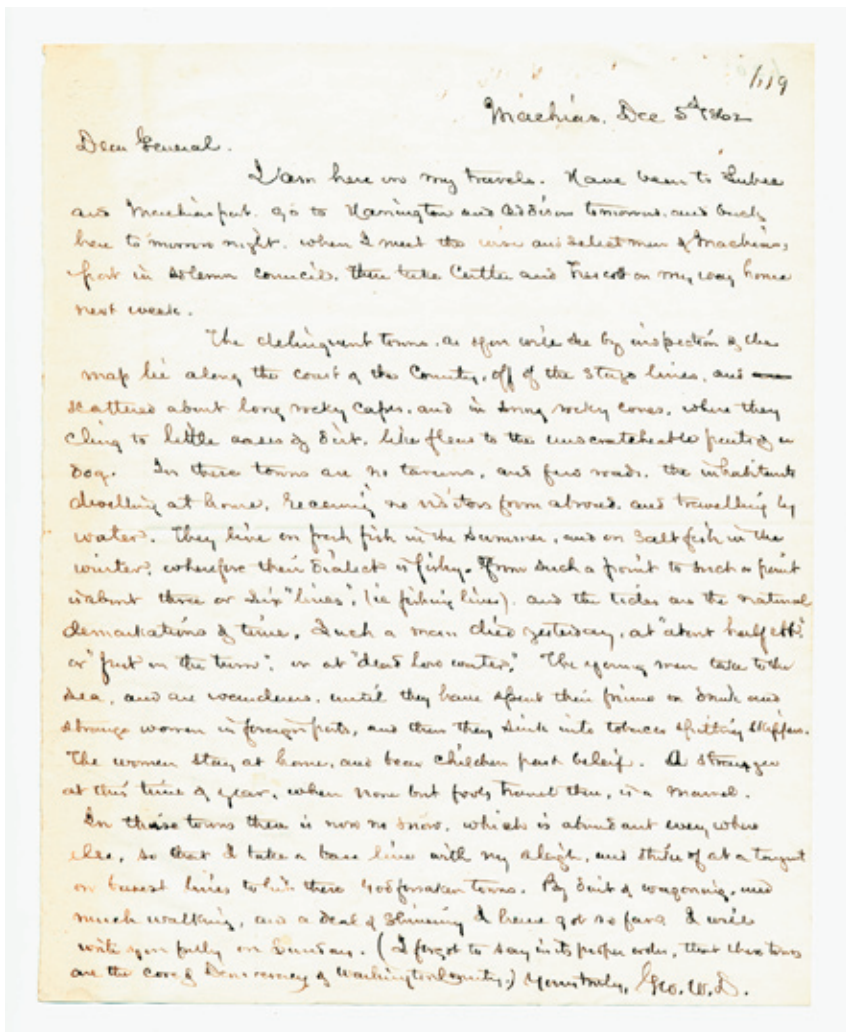 1119
Machias, Dec 5th 1862
Dear General.
I am here in my travels. Have been to Lubec
and Machiasport. go to Harrington and Addison tomorrow. and back
here to morrow night. when I meet the wise and select men of Machias,
port in solemn council. then take Cutler and Trescott on my way home
next week.
The delinquent towns. as you will see by inspection of the
map lie along the coast of the County, off of the stage lines, and
scattered about long rocky capes, and in snug rocky coves, where they
cling to little oases of dirt, like fleas to the unscratcheable parts of a
dog. In these towns are no taverns, and few roads. the inhabitants
dwelling at home, receiving no visitors from abroad. and travelling by
water. They live on fresh fish in the summer, and on salt fish in the
winter, wherefore their dialect is fishy. From such a point to such a point
is about three or six "lines", (ie fishing lines). and the tides are the natural
demarkations of time. Such a man died yesterday, at "about half ebb",
or "just on the turn", or at "dead low water." The young men take to the
sea, and are wanderers, until they have spent their prime on drink and
strange women in foreign ports, and then they sink into tobacco spitting skippers.
The women stay at home, and bear children past beleif. A stranger
at this time of year, when none but fools travel there, is a marvel.
In these towns there is now no snow, which is abundant every where
else, so that I take a base line with my sleigh, and strike off at a tangent
on lines to hit these godforsaken towns. By dint of wagoning, and
much walking, and a deal of I have got so far. I will
write you fully on Sunday. (I forgot to say in its proper order, that these towns
are the core of Democracy of Washington County.) Yours truly, Geo. W. D.